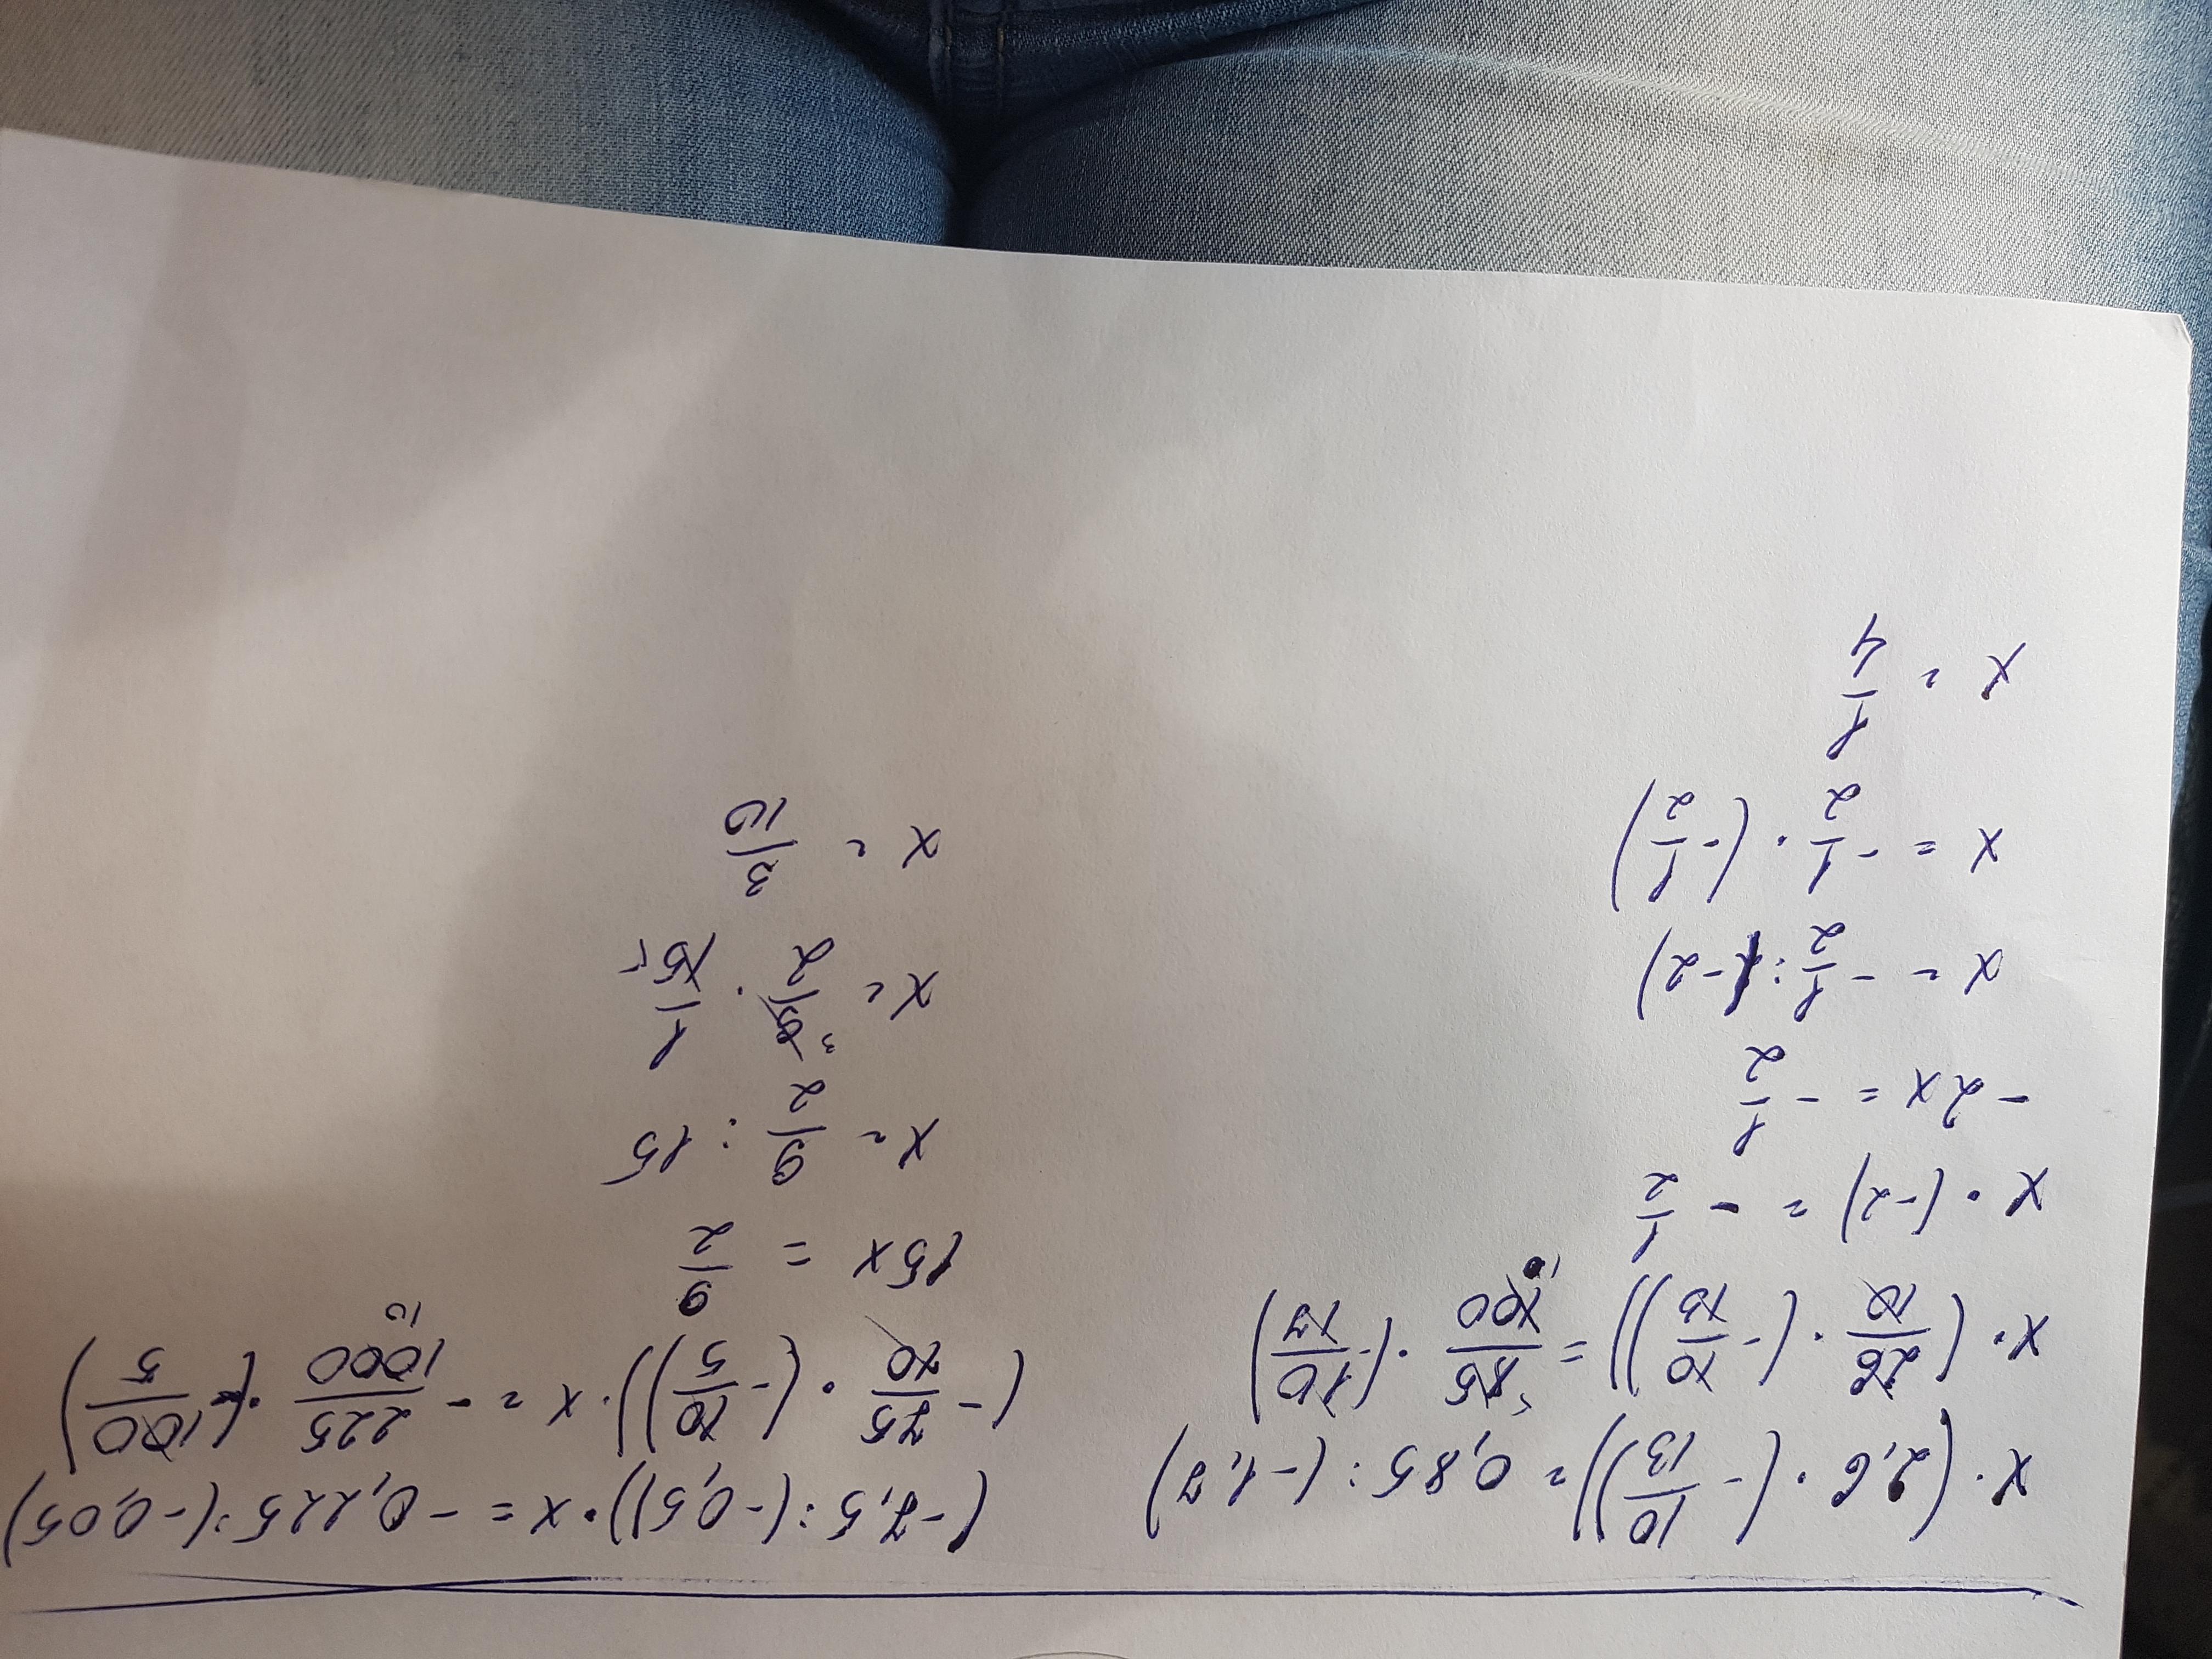 x·(2,6·(-10/13)) = 0,85:(-1,7)
x·(26/10·(-10/13)) = 85/100·(-10/17)
x·(-2) = -1/2
-2x = -1/2
x = -1/2:(-2)
x = -1/2·(-1/2)
x = 1/4
(-7,5:(-0,5))·x = -0,225:(-0,05)
(-75/10·(-10/5))·x = -225/1000·(-100/5)
15x = 9/2
x = 9/2:15
x = 9/2·1/15
x = 3/10